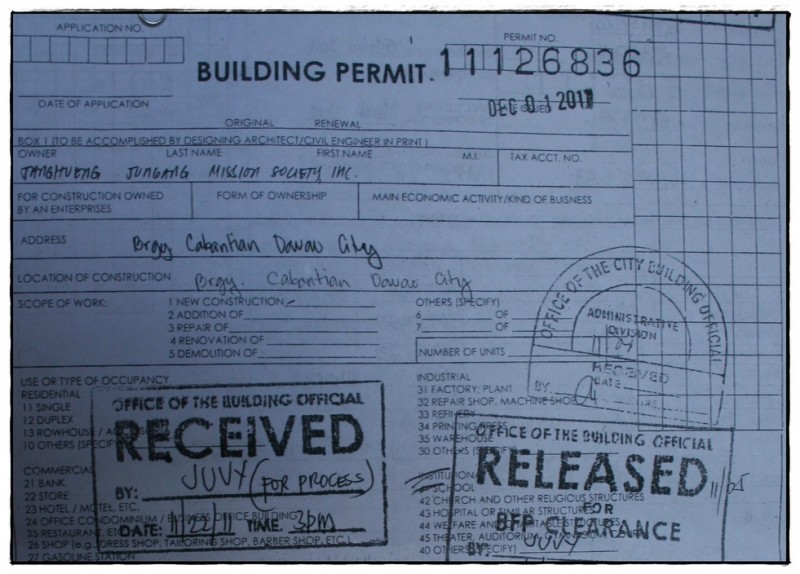 APPLICATION NO.
PERMIT NO.
BUILDING PERMIT. 11126836
DATE OF APPLICATION
DEC 01 2011
ISSUED
ORIGINAL RENEWAL
BOX 1 (TO BE ACCOMPLISHED BY DESIGNING ARCHITECT/CIVIL ENGINEER IN PRINT)
OWNER LAST NAME FIRST NAME M.I. TAX ACCT. NO.
JUNGANG MISSION SOCIETY INC.
FOR CONSTRUCTION OWNED FORM OF OWNERSHIP MAIN ECONOMIC ACTIVITY/KIND OF BUISNESS
BY AN ENTERPRISES
ADDRESS Brgy Cabantian Davao City
LOCATION OF CONSTRUCTION Brgy. Cabantian Davao City
SCOPE OF WORK: 1 NEW CONSTRUCTION OTHERS (SPECIFY)
2 ADDITION OF 6 OF
3 REPAIR OF 7 OF
4 RENOVATION OF
5 DEMOLITION OF NUMBER OF UNITS
OFFICE OF THE CITY BUILDING OFFICIAL
ADMINISTRATIVE
DIVISION
RECEIVED
DATE
BY:
USE OR TYPE OF OCCUPANCY
RESIDENTIAL
11 SINGLE
12 DUPLEX
13 ROWHOUSE / A
10 OTHERS (SPECIFY
COMMERCIAL
21 BANK
22 STORE
23 HOTEL / MOTEL, ETC.
24 OFFICE CONDOMINIUM / BUSINESS OFFICE BUILDING
25 RESTAURANT, ETC
26 SHOP (e.g., DRESS SHOP, TAILORING SHOP, BARBER SHOP, ETC.)
27 GASOLINE STATION
OFFICE OF THE BUILDING OFFICIAL
RECEIVED
BY: JUVY (FOR PROCESS)
DATE: 11/22/11 TIME: 3PM
INDUSTRIAL
31 FACTORY; PLANT
32 REPAIR SHOP, MACHINE SHOP
33 REFINERY
34 PRINTING PRESS
35 WAREHOUSE
30 OTHERS (SPECIFY)
INSTITUTIONAL
SCHOOL
42 CHURCH AND OTHER RELIGIOUS STRUCTURES
43 HOSPITAL OR SIMILAR STRUCTURES
44 WELFARE AND CHARITABLE STRUCTURES
45 THEATER, AUDITORIUM
40 OTHERS (SPECIFY)
OFFICE OF THE BUILDING OFFICIAL
RELEASED
FOR
BFP CLEARANCE
BY: JUVY